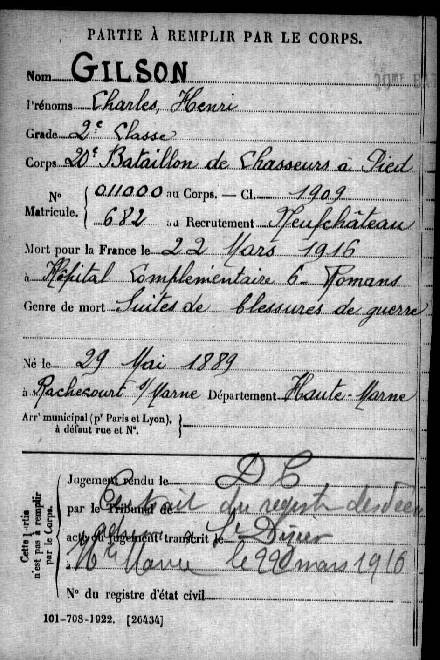 PARTIE À REMPLIR PAR LE CORPS.
Nom GILSON
Prénoms Charles, Henri
Grade 2e Classe
Corps 20e Bataillon de Chasseurs à Pied
N° Matricule. { 011000 au Corps. — Cl. 1909
682 au Recrutement Neufchâteau
Mort pour la France le 22 Mars 1916
à Hôpital Complementaire 6 - Romans
Genre de mort Suites de blessures de guerre
Né le 29 Mai 1889
à Rachecourt s/Marne Département Haute-Marne
Arrt municipal (pr Paris et Lyon), à défaut rue et N°. }
Cette partie n'est pas à remplir par le Corps.
Jugement rendu le DC
par le Tribunal de Extrait du registre des
acte ou jugement transcrit le St Dizier
à Hte Marne le 22 mars 1916
N° du registre d'état civil
101-708-1922. [26434]